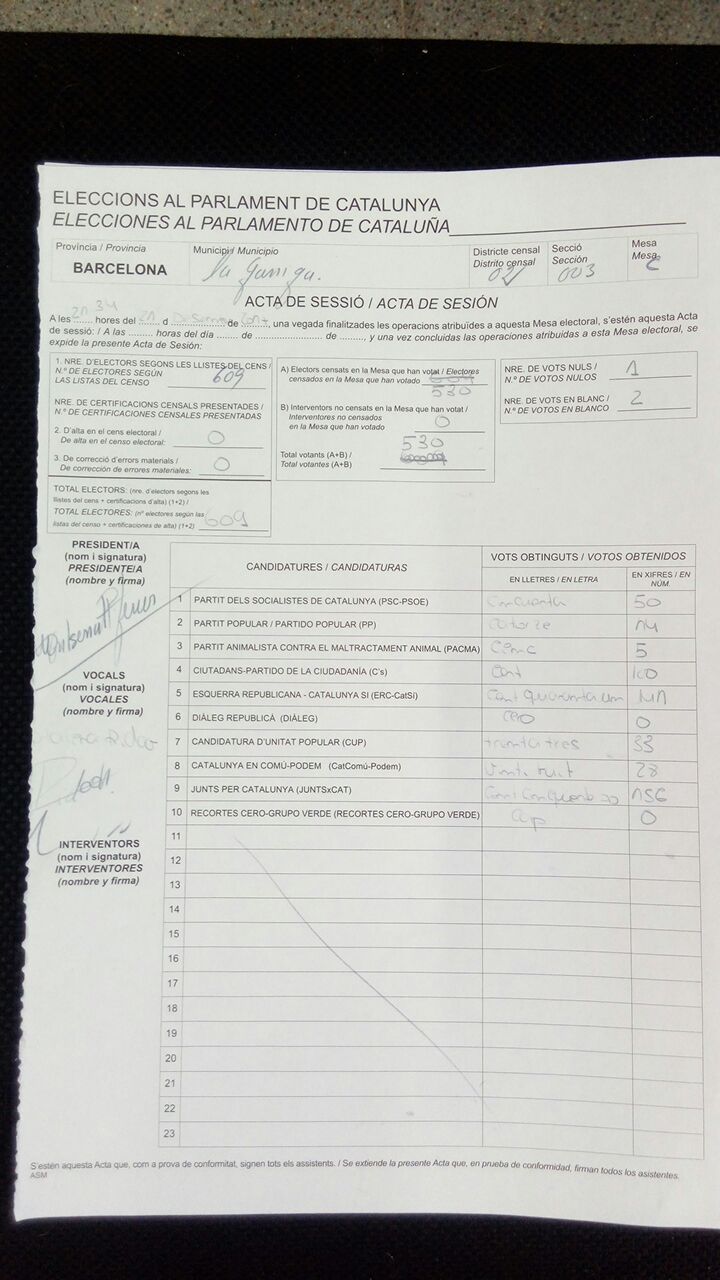 ELECCIONS AL PARLAMENT DE CATALUNYA
ELECCIONES AL PARLAMENTO DE CATALUÑA
Província / Provincia
BARCELONA
Municipi / Municipio
La Garriga.
Districte censal
Distrito censal
02
Secció
Sección
003
Mesa
Mesa
C
ACTA DE SESSIÓ / ACTA DE SESIÓN
A les 21.34 hores del 21 d Desembre de 2017, una vegada finalitzades les operacions atribuïdes a aquesta Mesa electoral, s'estén aquesta Acta
de sessió: / A las ......... horas del día ....... de .......................... de ..........., y una vez concluidas las operaciones atribuidas a esta Mesa electoral, se
expide la presente Acta de Sesión:
1. NRE. D'ELECTORS SEGONS LES LLISTES DEL CENS /
N.º DE ELECTORES SEGÚN
LAS LISTAS DEL CENSO 609
NRE. DE CERTIFICACIONS CENSALS PRESENTADES /
N.º DE CERTIFICACIONES CENSALES PRESENTADAS
2. D'alta en el cens electoral /
De alta en el censo electoral: 0
3. De correcció d'errors materials /
De corrección de errores materiales: 0
TOTAL ELECTORS: (nre. d'electors segons les
llistes del cens + certificacions d'alta) (1+2) /
TOTAL ELECTORES: (nº electores según las
listas del censo + certificaciones de alta) (1+2) 609
A) Electors censats en la Mesa que han votat / Electores
censados en la Mesa que han votado
530
B) Interventors no censats en la Mesa que han votat /
Interventores no censados
en la Mesa que han votado 0
530
Total votants (A+B) /
Total votantes (A+B)
NRE. DE VOTS NULS /
N.º DE VOTOS NULOS 1
NRE. DE VOTS EN BLANC /
N.º DE VOTOS EN BLANCO 2
PRESIDENT/A
(nom i signatura)
PRESIDENTE/A
(nombre y firma)
Montserrat
VOCALS
(nom i signatura)
VOCALES
(nombre y firma)
INTERVENTORS
(nom i signatura)
INTERVENTORES
(nombre y firma)
CANDIDATURES / CANDIDATURAS
VOTS OBTINGUTS / VOTOS OBTENIDOS
EN LLETRES / EN LETRA
EN XIFRES / EN NÚM.
1 PARTIT DELS SOCIALISTES DE CATALUNYA (PSC-PSOE) Cincuanta 50
2 PARTIT POPULAR / PARTIDO POPULAR (PP) Catorze 14
3 PARTIT ANIMALISTA CONTRA EL MALTRACTAMENT ANIMAL (PACMA) Cinc 5
4 CIUTADANS-PARTIDO DE LA CIUDADANÍA (C's) Cent 100
5 ESQUERRA REPUBLICANA - CATALUNYA SI (ERC-CatSí) Cent quaranta un 141
6 DIÀLEG REPUBLICÀ (DIÀLEG) cero 0
7 CANDIDATURA D'UNITAT POPULAR (CUP) trenta tres 33
8 CATALUNYA EN COMÚ-PODEM (CatComú-Podem) Vint i vuit 28
9 JUNTS PER CATALUNYA (JUNTSxCAT) 156
10 RECORTES CERO-GRUPO VERDE (RECORTES CERO-GRUPO VERDE) Cap 0
11
12
13
14
15
16
17
18
19
20
21
22
23
S'estén aquesta Acta que, com a prova de conformitat, signen tots els assistents. / Se extiende la presente Acta que, en prueba de conformidad, firman todos los asistentes.
ASM